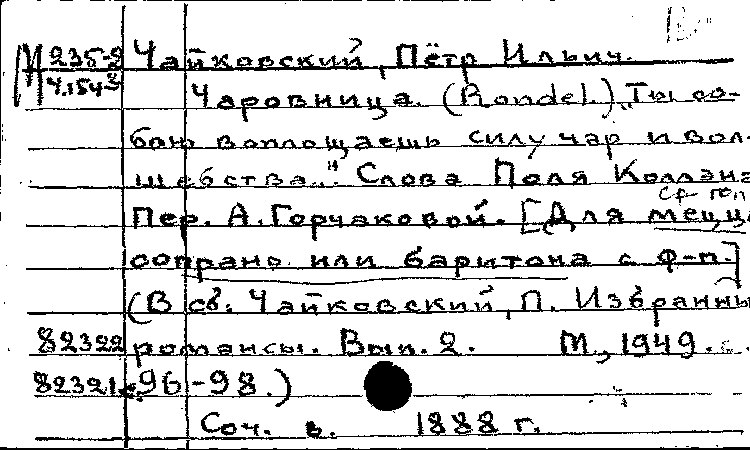 М 235-2 Чайковский, Пётр Ильич.
Ч.154-3 Чаровница. (Rondel.) „Ты со-
бою воплощаешь силу чар и вол-
шебства..." Слова Поля Коллэна
ср. гол
Пер. А. Горчаковой. [Для мецц
сопрано или баритона с ф-п.]
(В сб. Чайковский, П. Избранны
82322 романсы. Вып. 2. М., 1949. с.
82321 96-98.)
Соч. в. 1888 г.